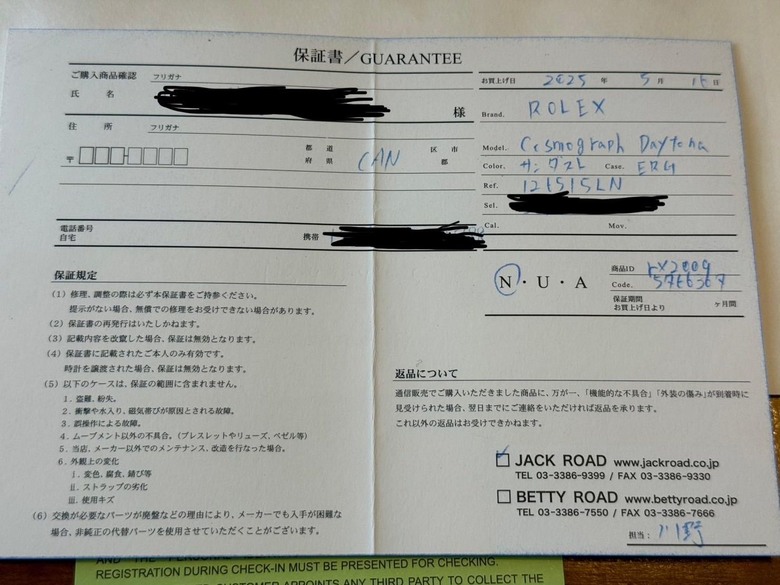 保証書／GUARANTEE
ご購入商品確認 フリガナ
氏 名 様
住 所 フリガナ
〒 都 道 府 県 CAN 区 市 郡
電話番号
自宅 携帯
お買上げ日 2025 年 5月 15日
Brand. ROLEX
Model. Cosmograph Daytona
Color. Case. ERG
Ref. 126515LN
Sel.
Cal. Mov.
N・U・A
商品ID rx2009
Code.
保証期間
お買上げ日より ヶ月間
保証規定
(1) 修理、調整の際は必ず本保証書をご持参ください。
提示がない場合、無償での修理をお受けできない場合があります。
(2) 保証書の再発行はいたしかねます。
(3) 記載内容を改竄した場合、保証は無効となります。
(4) 保証書に記載されたご本人のみ有効です。
時計を譲渡された場合、保証は無効となります。
(5) 以下のケースは、保証の範囲に含まれません。
1. 盗難、紛失。
2. 衝撃や水入り、磁気帯びが原因とされる故障。
3. 誤操作による故障。
4. ムーブメント以外の不具合。(ブレスレットやリューズ、ベゼル等)
5. 当店、メーカー以外でのメンテナンス、改造を行なった場合。
6. 外観上の変化
i. 変色、腐食、錆び等
ii. ストラップの劣化
iii. 使用キズ
(6) 交換が必要なパーツが廃盤などの理由により、メーカーでも入手が困難な
場合、非純正の代替パーツを使用させていただくことがございます。
返品について
通信販売でご購入いただきました商品に、万が一、「機能的な不具合」「外装の傷み」が到着時に
見受けられた場合、翌日までにご連絡をいただければ返品を承ります。
これ以外の返品はお受けできかねます。
JACK ROAD www.jackroad.co.jp
TEL 03-3386-9399 / FAX 03-3386-9330
BETTY ROAD www.bettyroad.co.jp
TEL 03-3386-7550 / FAX 03-3386-7666
担当： 川野
REGISTRATION DURING CHECK-IN MUST BE PRESENTED FOR CHECKING.
CUSTOMER APPOINTS ANY THIRD PARTY TO COLLECT THE